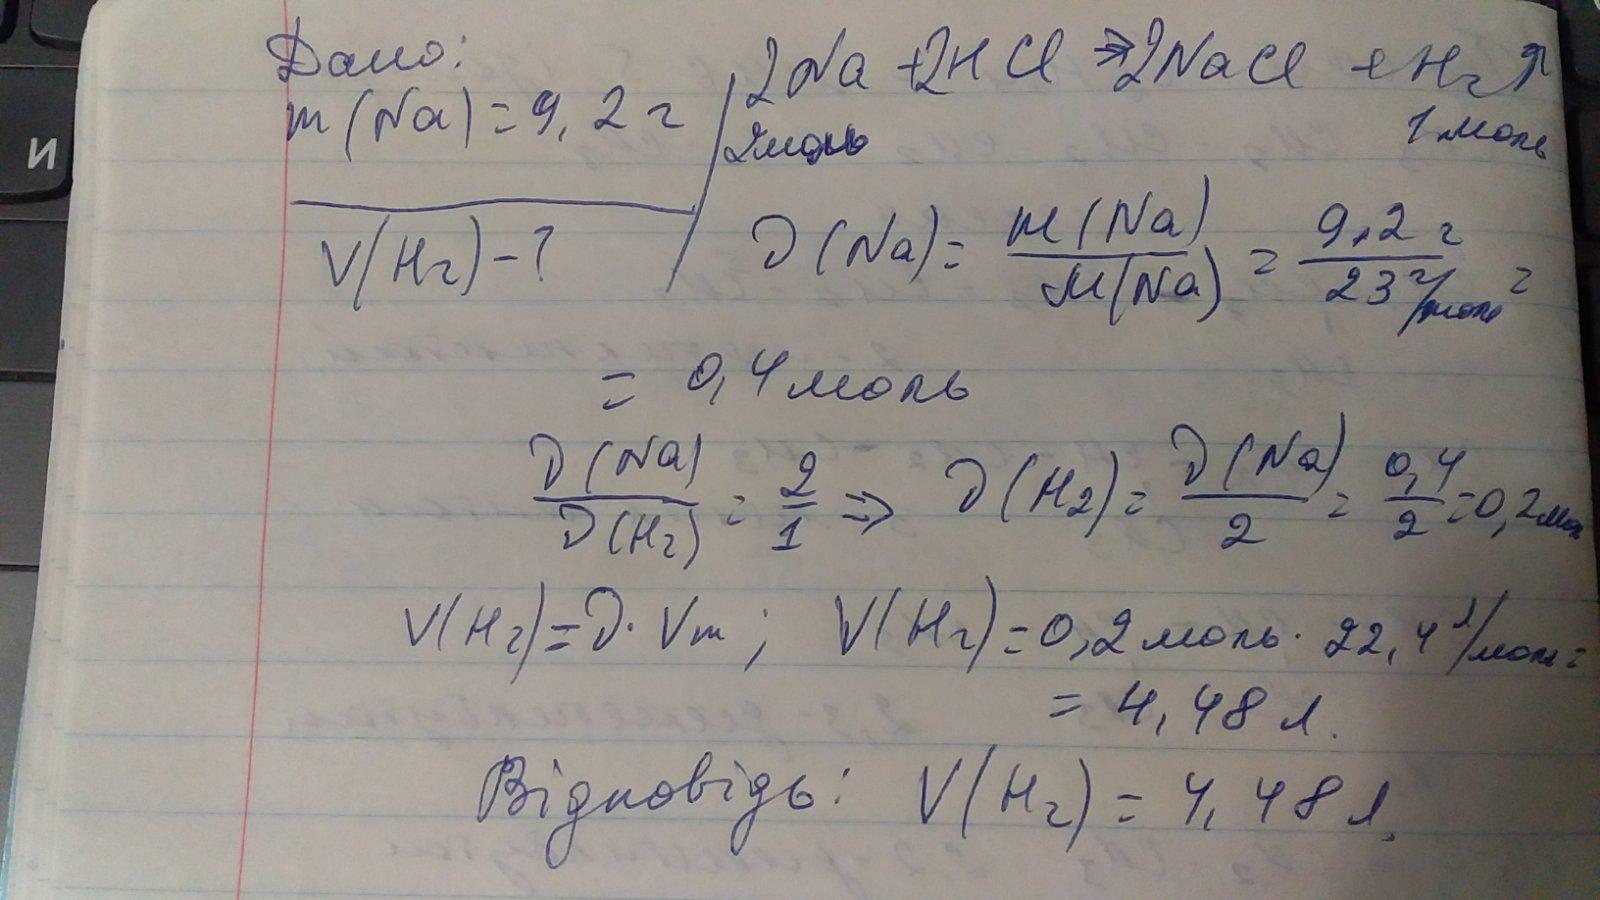 И
Дано:
m(Na)=9,2 г
V(H₂)-?
2Na+2HCl⇒2NaCl+H₂↑
2моль 1моль
ν(Na)= m(Na)/M(Na) = 9,2 г/23 г/моль =
= 0,4 моль
ν(Na)/ν(H₂) = 2/1 ⇒ ν(H₂)= ν(Na)/2 = 0,4/2 =0,2мол
V(H₂)=ν·Vm; V(H₂)=0,2 моль·22,4 л/моль=
= 4,48 л.
Відповідь: V(H₂)=4,48 л.